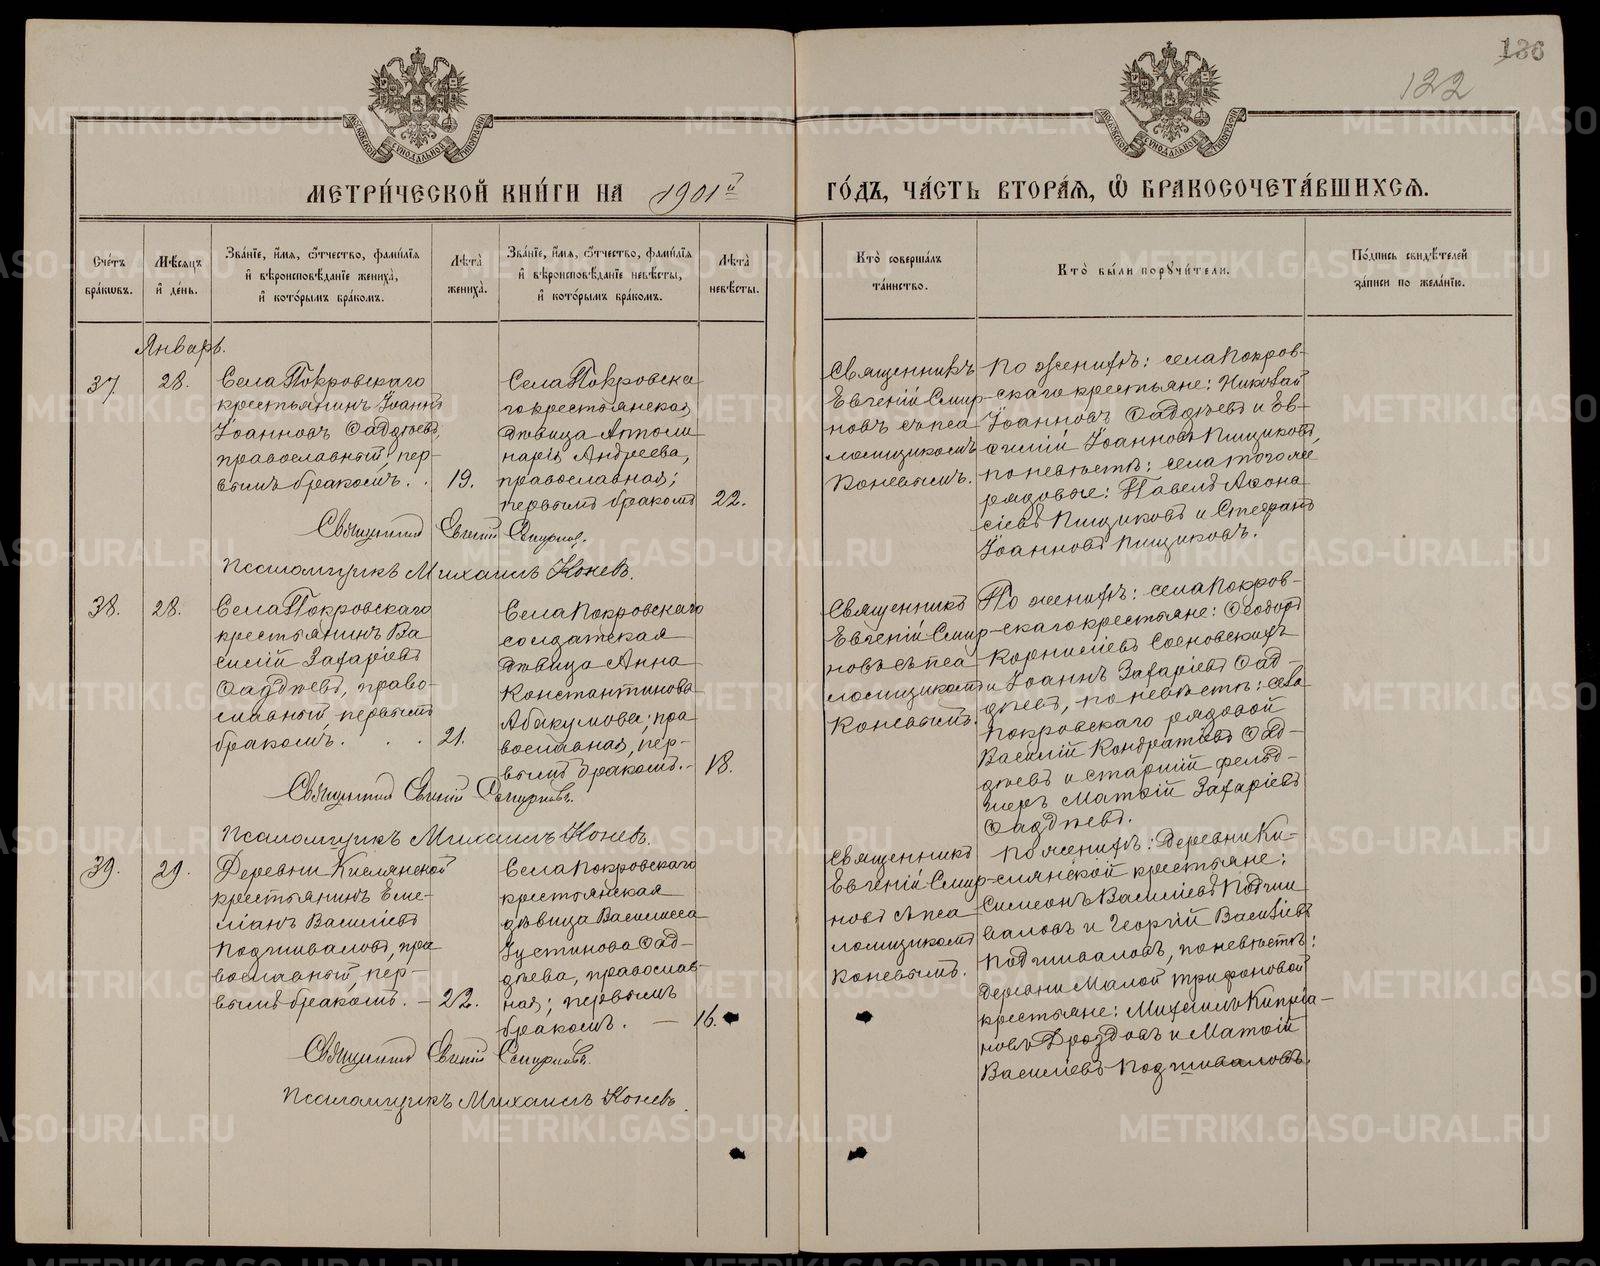 136
122
МЕТРИ́ЧЕСКОЙ КНИ́ГИ НА 1901й ГО́ДЪ, ЧА́СТЬ ВТОРА́Я, Ѿ БРАКОСОЧЕТА́ВШИХСЯ.
Сче́тъ бра́кѡвъ.
Мѣ́сяцъ и҆ де́нь.
Зва́нїе, и҆́мя, ѻ҆́тчество, фами́лїя
и҆ вѣроисповѣ́данїе жениха̀,
и҆ кото́рымъ бра́комъ.
Лѣ́та̀ жениха̀.
Зва́нїе, и҆́мя, ѻ҆́тчество, фами́лїя
и҆ вѣроисповѣ́данїе невѣ́сты,
и҆ кото́рымъ бра́комъ.
Лѣ́та̀ невѣ́сты.
Кто̀ соверша́лъ
та́инство.
Кто̀ бы́ли поручи́тели.
По́дпись свидѣ́телей
за́писи по жела́нїю.
Январь.
37.
28.
Села Покровскаго
крестьянинъ Іоаннъ
Іоанновъ Ѳаддѣевъ,
православный, пер-
вымъ бракомъ. .
19.
Села Покровска
го крестьянская
дѣвица Аполли
нарія Андреева,
православная;
первымъ бракомъ
22.
Священникъ
Евгеній Смир-
новъ съ пса
ломщикомъ
Коневымъ.
По женихѣ: села Покров-
скаго крестьяне: Николай
Іоанновъ Ѳаддѣевъ и Ев-
ѳимій Іоанновъ Пищиковъ,
по невѣстѣ: села того же
рядовые: Павелъ Аѳона
сіевъ Пищиковъ и Стефанъ
Іоанновъ Пищиковъ.
Священникъ Евгеній Смирновъ.
Псаломщикъ Михаилъ Коневъ.
38.
28.
Села Покровскаго
крестьянинъ Ва
силій Захаріевъ
Ѳаддѣевъ, право-
славный, первымъ
бракомъ. . .
21.
Села Покровскаго
солдатская
дѣвица Анна
Константинова
Абакумова; пра
вославная, пер-
вымъ бракомъ. -
18.
Священникъ
Евгеній Смир-
новъ съ пса
ломщикомъ
Коневымъ.
По женихѣ: села Покров-
скаго крестьяне: Ѳеодоръ
Корниліевъ Сосновскихъ
и Іоаннъ Захаріевъ Ѳад-
дѣевъ, по невѣстѣ: села
Покровскаго рядовой
Василій Кондратіевъ Ѳад-
дѣевъ и старшій фельд-
шеръ Матѳій Захаріевъ
Ѳаддѣевъ.
Священникъ Евгеній Смирновъ.
Псаломщикъ Михаилъ Коневъ.
39.
29.
Деревни Кислянской
крестьянинъ Еме-
ліанъ Василіевъ
Подшиваловъ, пра
вославный, пер-
вымъ бракомъ. -
22.
Села Покровскаго
крестьянская
дѣвица Василисса
Іустинова Ѳад-
дѣева, православ-
ная; первымъ
бракомъ. —
16.
Священникъ
Евгеній Смир-
новъ съ пса
ломщикомъ
Коневымъ.
По женихѣ: Деревни Ки-
слянской крестьяне:
Симеонъ Василіевъ Подши
валовъ и Георгій Василіевъ
Подшиваловъ, по невѣстѣ:
деревни Малой Трифоновой
крестьяне: Михаилъ Кипріа-
новъ Дроздовъ и Матѳій
Василіевъ Подшиваловъ.
Священникъ Евгеній Смирновъ.
Псаломщикъ Михаилъ Коневъ.